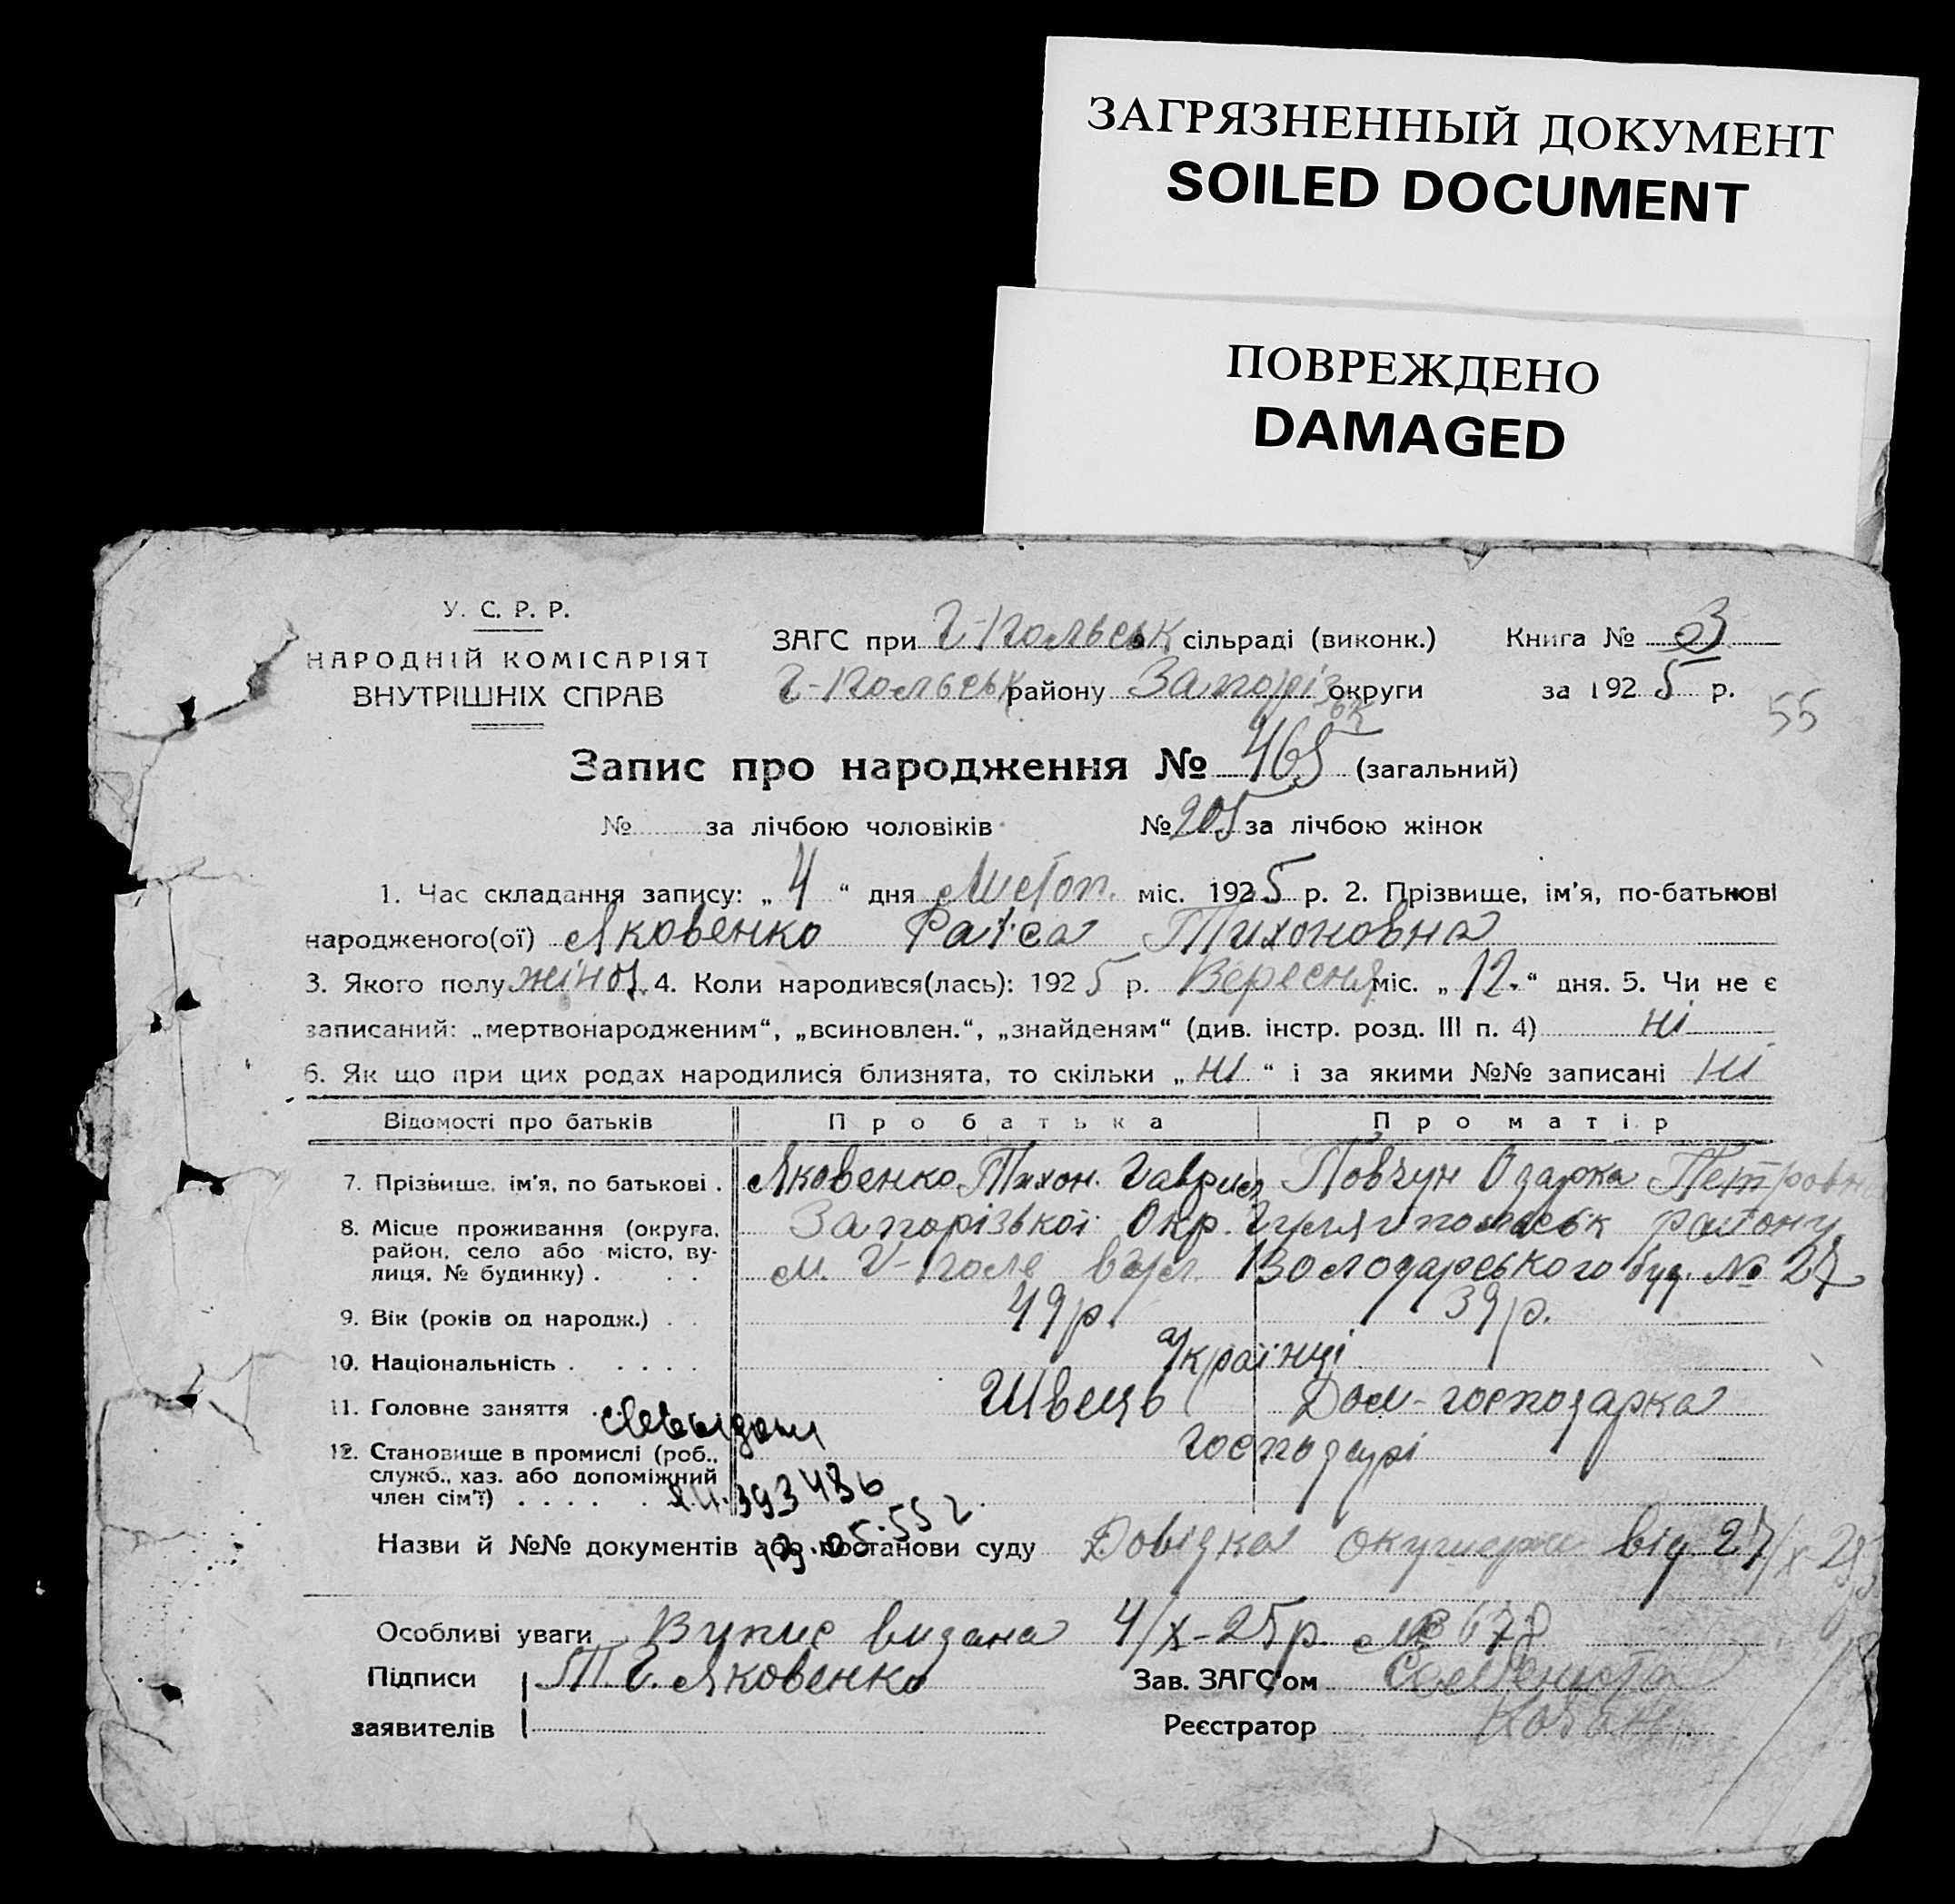 ЗАГРЯЗНЕННЫЙ ДОКУМЕНТ
SOILED DOCUMENT
ПОВРЕЖДЕНО
DAMAGED
У. С. Р. Р.
НАРОДНІЙ КОМІСАРІЯТ
ВНУТРІШНІХ СПРАВ
ЗАГС при Г-Польськ сільраді (виконк.)
Г-Польськ району Запорізьк округи
Книга № 3
за 1925 р.
55
Запис про народження № 465 (загальний)
№ за лічбою чоловіків № 205 за лічбою жінок
1. Час складання запису: „ 4 “ дня Листоп. міс. 1925 р. 2. Прізвище, ім'я, по-батькові
народженого(ої) Яковенко Раїса Тихоновна
3. Якого полу жіноч. 4. Коли народився(лась): 1925 р. Вересня міс. „ 12. “ дня. 5. Чи не є
записаний: „мертвонародженим“, „всиновлен.“, „знайденям“ (див. інстр. розд. III п. 4) ні
6. Як що при цих родах народилися близнята, то скільки „ ні “ і за якими №№ записані ні
Відомості про батьків Про батька Про матір
7. Прізвище, ім'я, по батькові . Яковенко Тихон. Гаврил Повчун Одарка Петровна
8. Місце проживання (округа, район, село або місто, вулиця, № будинку) . . . Запорізької Окр. Гуляйпольськ району
м. Г-Поле вул. Володарського буд. № 27
9. Вік (років од народж.) . . 49 р. 39 р.
10. Національність . . . . . Українці
11. Головне заняття . Швець Дом-господарка
12. Становище в промислі (роб., служб., хаз. або допоміжний член сім'ї) . . . . . господарі
393436
19.05.55 г.
Назви й №№ документів або постанови суду Довідка акушерки від 27/X-25
Особливі уваги Випис видана 4/X-25р. № 678
Підписи Т. Г. Яковенко Зав. ЗАГС'ом
заявителів Реєстратор